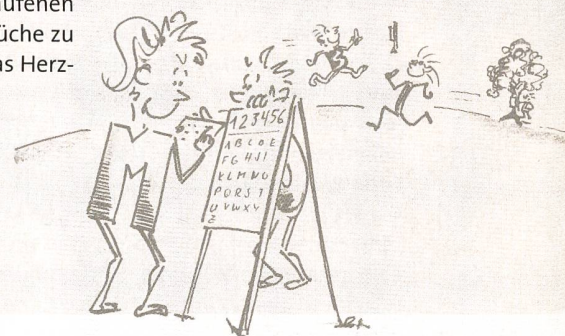 aufenen
üche zu
as Herz-
123456
ABCDE
FGHJI
KLMNO
PQRST
UVWXY
Z